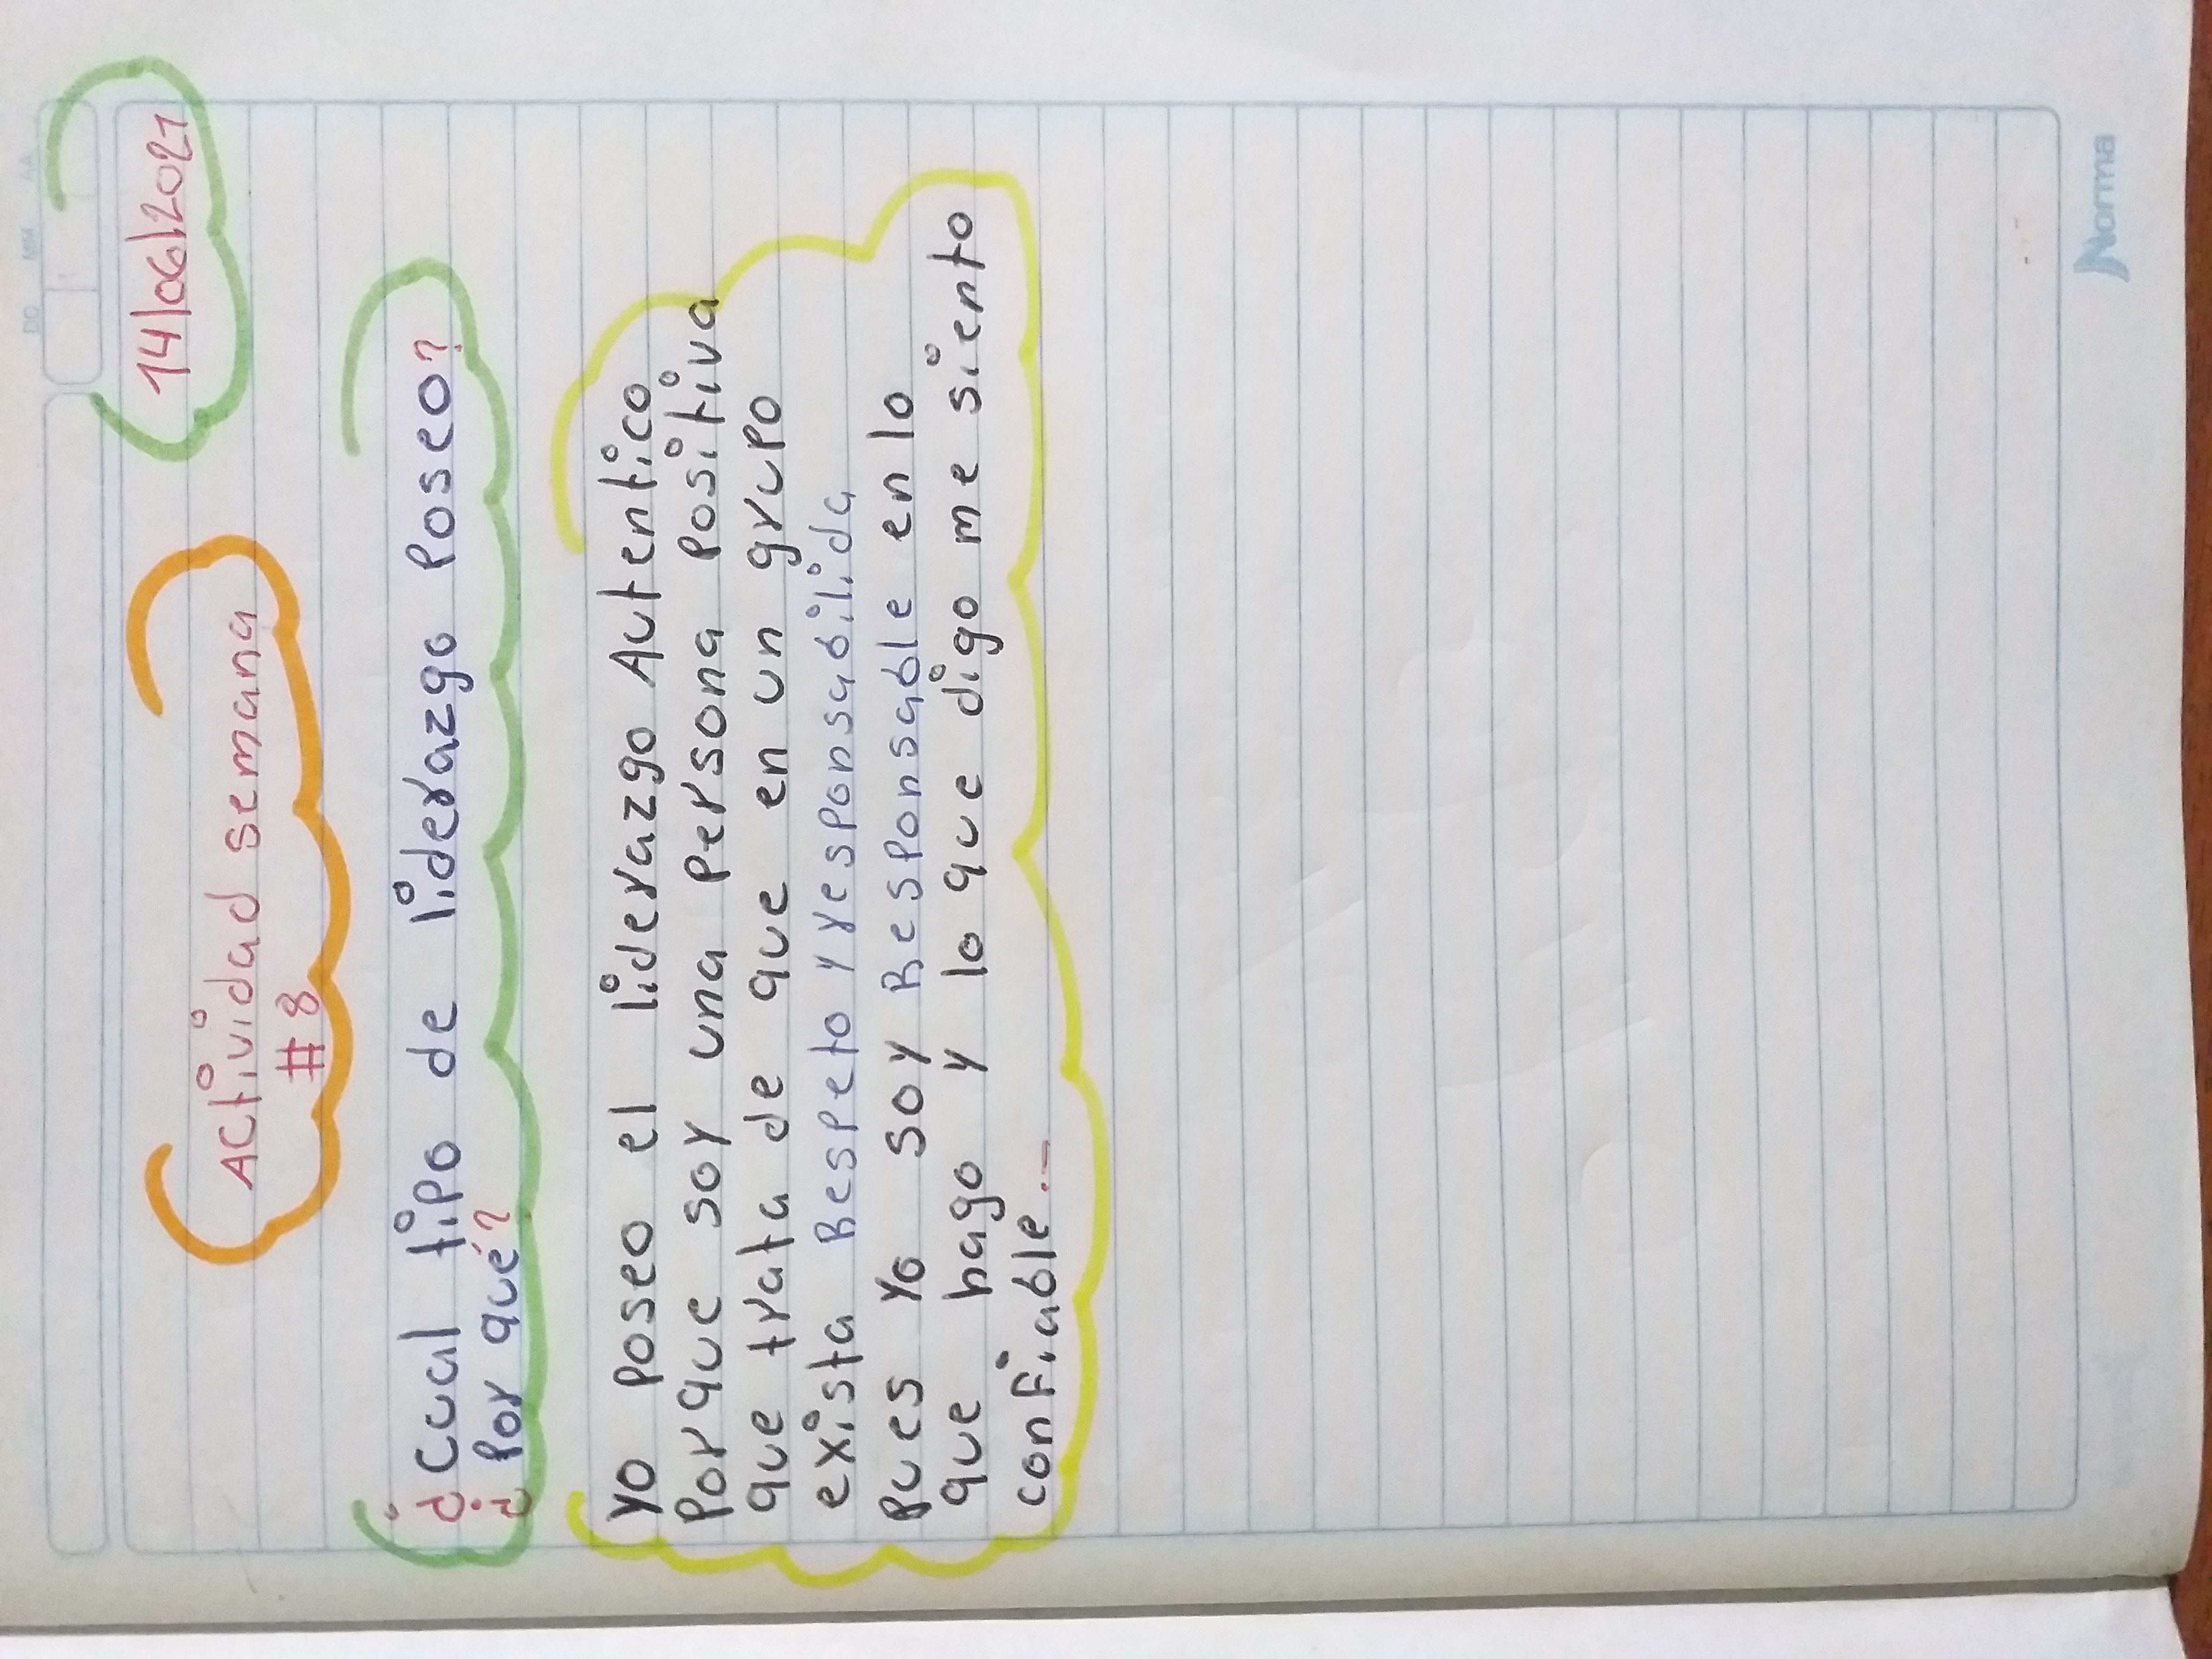 DD MM AA
14/06/2021
Actividad semana
#8
¿Cual tipo de liderazgo Poseo?
¿Por qué?
Yo poseo el liderazgo Autentico
Porque soy una persona Positiva
que trata de que en un grupo
exista Respeto y responsabilida
pues yo soy Responsable en lo
que hago y lo que digo me siento
confiable..-
Norma